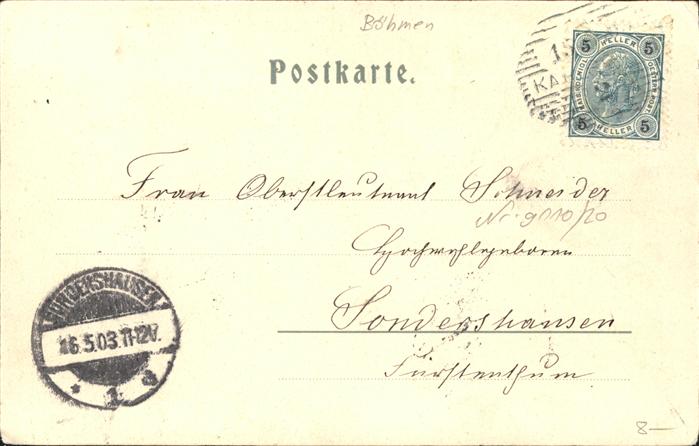 Böhmen
5 HELLER 5
5 HELLER 5
Postkarte.
Frau Oberstleutnant Schneider
Nr. 9010/20
Hochwohlgeboren
Sondershausen
Fürstenthum
SONDERSHAUSEN
16.5.03.11-12V.
* 1 a
8—